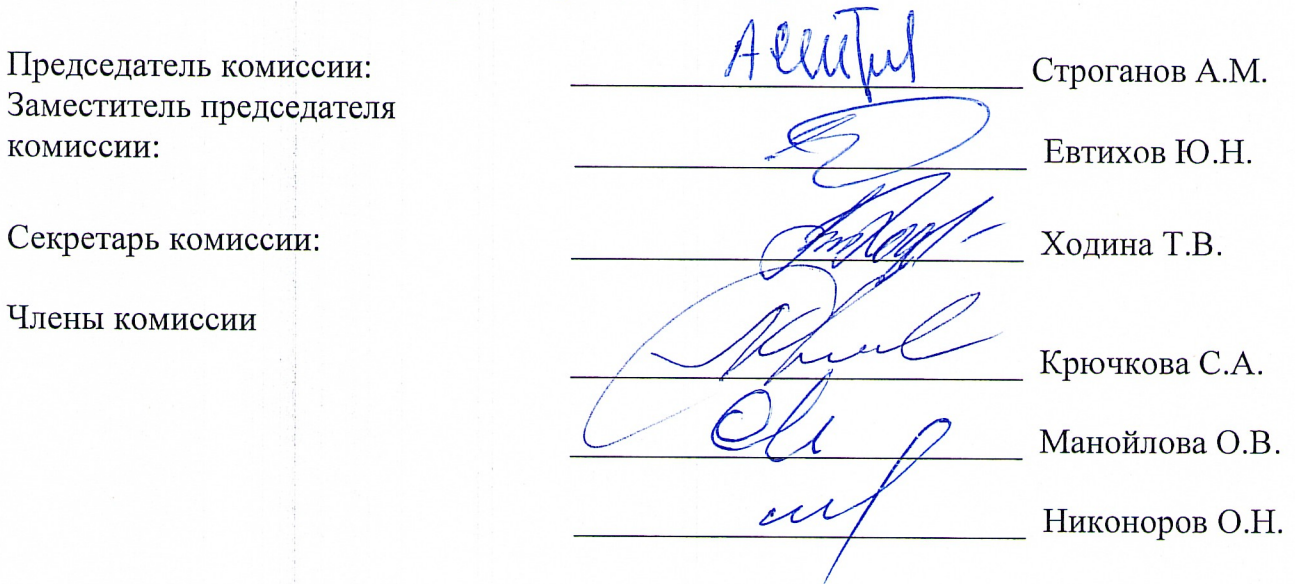 Председатель комиссии: Строганов А.М.
Заместитель председателя
комиссии: Евтихов Ю.Н.
Секретарь комиссии: Ходина Т.В.
Члены комиссии
Крючкова С.А.
Манойлова О.В.
Никоноров О.Н.